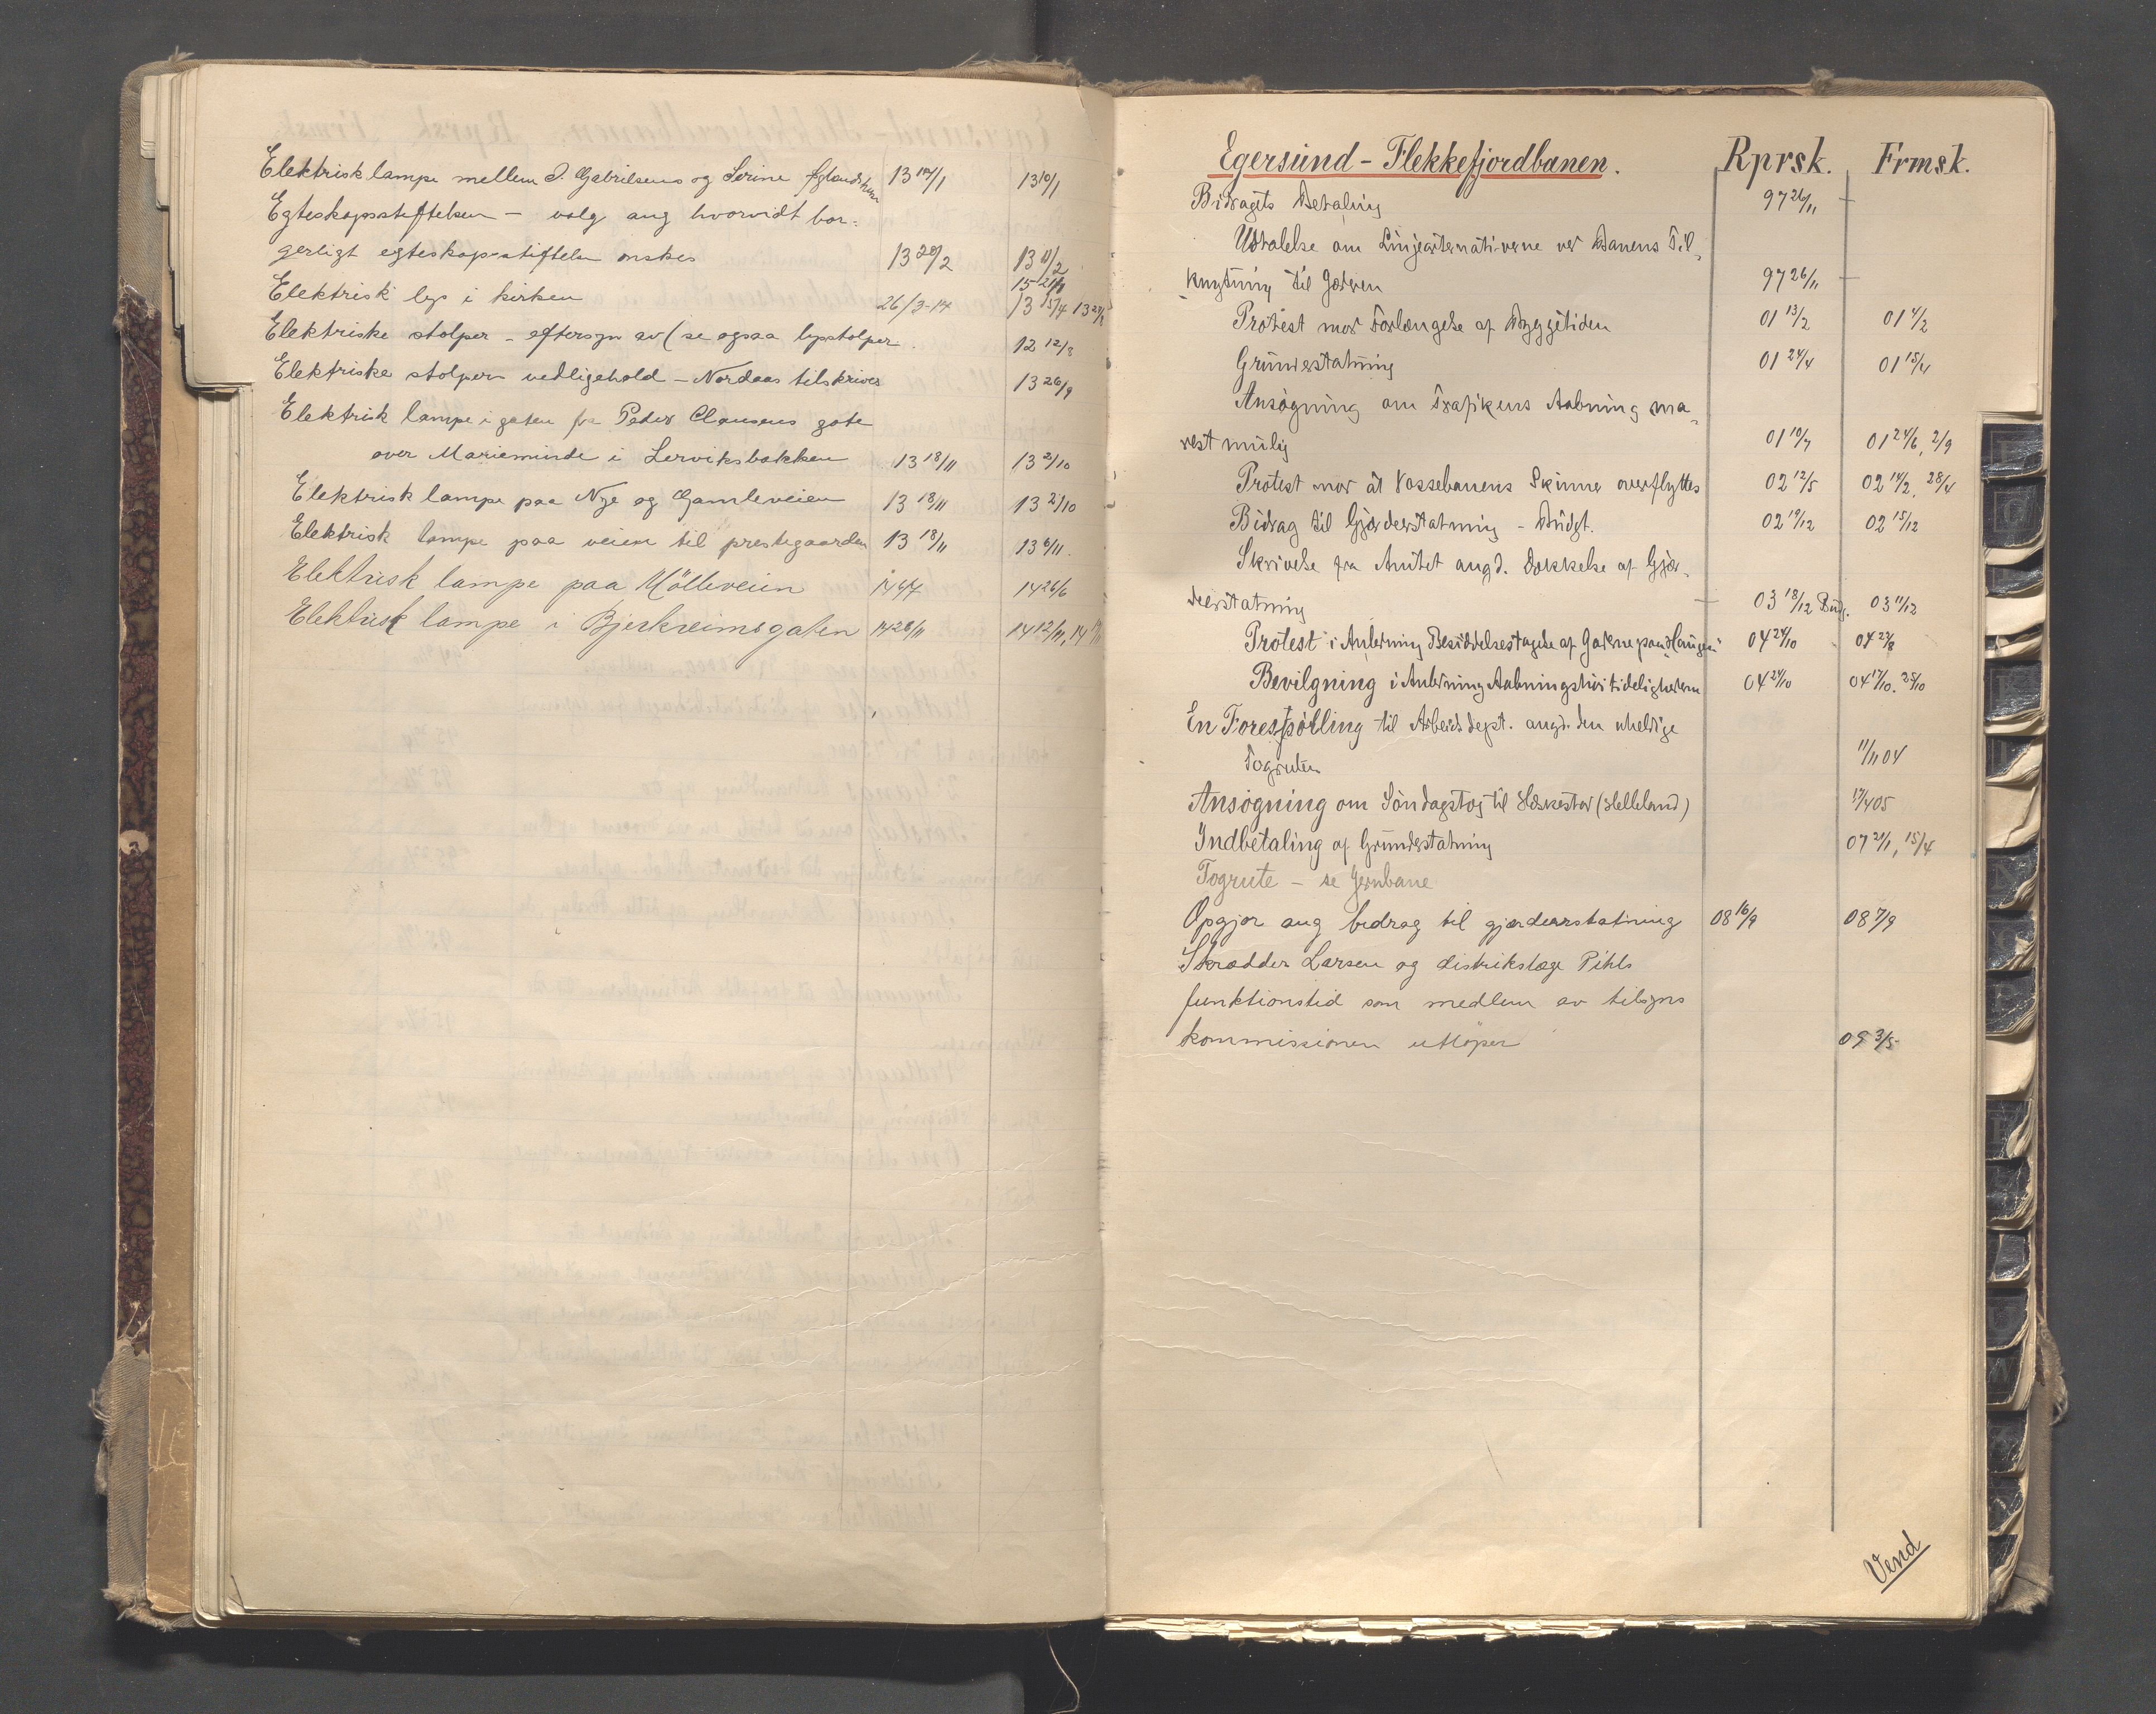 Elektrisk lampe mellem J. Gabrielsens og Serine 13 17/1 13 10/1
Egteskapsstiftelsen – valg ang hvorvidt bor=
gerligt egteskapsstiftelse ønskes 13 28/2 13 11/2
Elektrisk lys i kirken 26/3-14 13 15/4
Elektriske stolper – eftersyn av (se ogsaa lysstolper. 12 12/8
Elektriske stolpers vedligehold – Nordaas tilskrives 13 26/9
Elektrisk lampe i gaten fra Peder Clausens gate
over Marieminde i Lerviksbakken 13 18/11 13 2/10
Elektrisk lampe paa Nye og Gamleveien 13 18/11 13 2/10
Elektrisk lampe paa veien til prestegaarden 13 18/11 13 6/11.
Elektrisk lampe paa Mölleveien 14 26/6
Elektrisk lampe i Bjerkreimsgaten 14 28/11 14 12/11, 14
Egersund – Flekkefjordbanen. Rprsk. Frmsk.
Bidragets Betaling 97 26/11 –
Udtalelse om Linjealternativerne ved Banens Til-
knytning til Jæderen 97 26/11 –
Protest mod Forlængelse af Byggetiden 01 13/2 01 4/2
Grunderstatning 01 24/4 01 15/4
Ansøgning om Trafikens Aabning sna-
rest mulig 01 10/7 01 24/6, 2/9
Protest mod at Vossebanens Skinner overflyttes 02 12/5 02 14/2, 28/4
Bidrag til Gjerderstatning – Budgt. 02 19/12 02 15/12
Skrivelse fra Amtet angd. Dækkelse af Gjer-
derstatning – 03 18/12 Budg. 03 11/12
Protest i Anledning Besiddelsestagelse af Gaderne paa "Haugen" 04 24/10 04 23/8
Bevilgning i Anledning Aabningshøitideligheden 04 24/10 04 17/10. 25/10
En Forespørsling til Arbeidsdept. angd. den uheldige
Togruten 11/11 04
Ansøgning om Søndagstog til Hæskestad (Helleland) 17/4 05
Indbetaling af Grunderstatning 07 21/1, 15/4
Togrute – se Jernbane
Opgjør ang bidrag til gjærdeerstatning 08 16/9 08 7/9
Skrædder Larsen og distrikslæge Pihls
funktionstid som medlem av tilsyns
kommissionen utløper 09 3/5
Vend